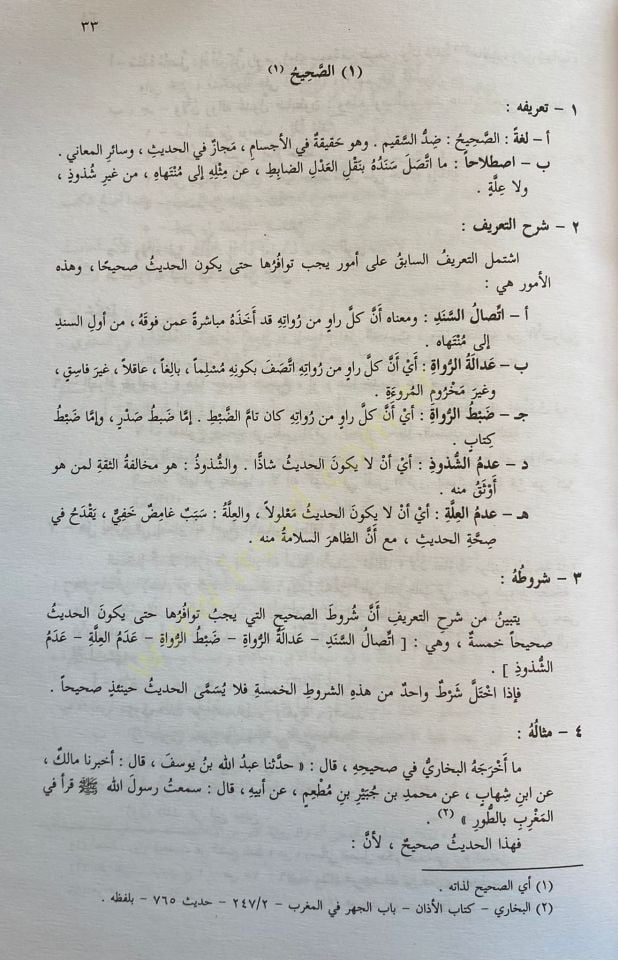 ٣٣
(١) الصَّحِيحُ (١)
١ - تعريفه :
أ - لغةً : الصَّحِيحُ : ضِدُّ السَّقيم . وهو حَقيقةٌ في الأجسامِ ، مَجازٌ في الحديثِ ، وسائرِ المعاني .
ب - اصطلاحاً : ما اتَّصَلَ سَنَدُهُ بنَقْلِ العَدْلِ الضابِطِ ، عن مِثْلِهِ إلى مُنْتَهاه ، من غيرِ شُذوذٍ ،
ولا عِلَّةٍ .
٢ - شرح التعريف :
اشتمل التعريفُ السابقُ على أمور يجب توافُرُها حتى يكون الحديثُ صحيحًا ، وهذه
الأمور هي :
أ - اتِّصالُ السَّنَدِ : ومعناه أَنَّ كلَّ راوٍ من رُواتِهِ قد أَخَذَهُ مباشرةً عمن فوقَهُ ، من أولِ السندِ
إلى مُنْتَهاه .
ب - عَدالَةُ الرُّواةِ : أَيْ أَنَّ كلَّ راوٍ من رُواتِهِ اتَّصَفَ بكونِهِ مُسْلِماً ، بالِغاً ، عاقلاً ، غيرَ فاسِقٍ ،
وغيرَ مَخْرُومِ المُروءَةِ .
جـ - ضَبْطُ الرُّواةِ : أيْ أَنَّ كلَّ راوٍ من رُواتِهِ كان تامَّ الضَّبْطِ . إمَّا ضَبطُ صَدْرٍ ، وإمَّا ضَبْطُ
كِتابٍ .
د - عدمُ الشُّذوذِ : أي أنْ لا يكونَ الحديثُ شاذًّا . والشُّذوذُ : هو مخالفةُ الثقةِ لمن هو
أَوْثَقُ منه .
هـ - عدمُ العِلَّةِ : أيْ أنْ لا يكونَ الحديثُ مَعْلولاً ، والعِلَّةُ : سَبَبٌ غامِضٌ خَفِيٌّ ، يَقْدَحُ في
صِحَّةِ الحديثِ ، مع أنَّ الظاهرَ السلامةُ منه .
٣ - شروطُهُ :
يتبينُ من شرحِ التعريفِ أَنَّ شُروطَ الصحيحِ التي يجبُ توافُرُها حتى يكونَ الحديثُ
صحيحاً خمسةٌ ، وهي : [ اتِّصالُ السَّنَدِ - عَدالَةُ الرُّواةِ - ضَبْطُ الرُّواةِ - عَدَمُ العِلَّةِ - عَدَمُ
الشُّذوذِ ] .
فإذا اخْتَلَّ شَرْطٌ واحدٌ من هذهِ الشروطِ الخمسةِ فلا يُسَمَّى الحديثُ حينئذٍ صحيحاً .
٤ - مثالُهُ :
ما أَخْرَجَهُ البخاريُّ في صحيحِهِ ، قال : « حدَّثنا عبدُ الله بنُ يوسفَ ، قال : أخبرنا مالكٌ ،
عن ابنِ شِهابٍ ، عن محمدِ بنِ جُبَيْرِ بنِ مُطْعِمٍ ، عن أبيهِ ، قال : سمعتُ رسولَ الله ﷺ قرأ في
المَغْرِبِ بالطُّورِ » (٢) .
فهذا الحديثُ صحيحٌ ، لأنَّ :
(١) أي الصحيح لذاته .
(٢) البخاري - كتاب الأذان - باب الجهر في المغرب - ٢٤٧/٢ - حديث ٧٦٥ - بلفظه .